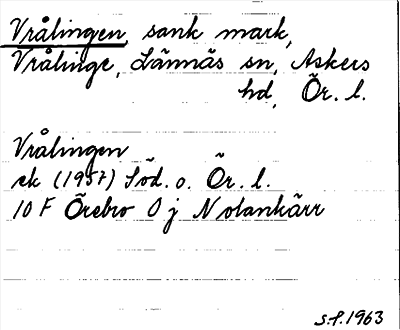 Vrålingen, sank mark,
Vrålinge, Lännäs sn, Askers
hd, Ör. l.
Vrålingen
ek (1957) Söd. o. Ör. l.
10 F Örebro 0 j N olankärr
S.f. 1963